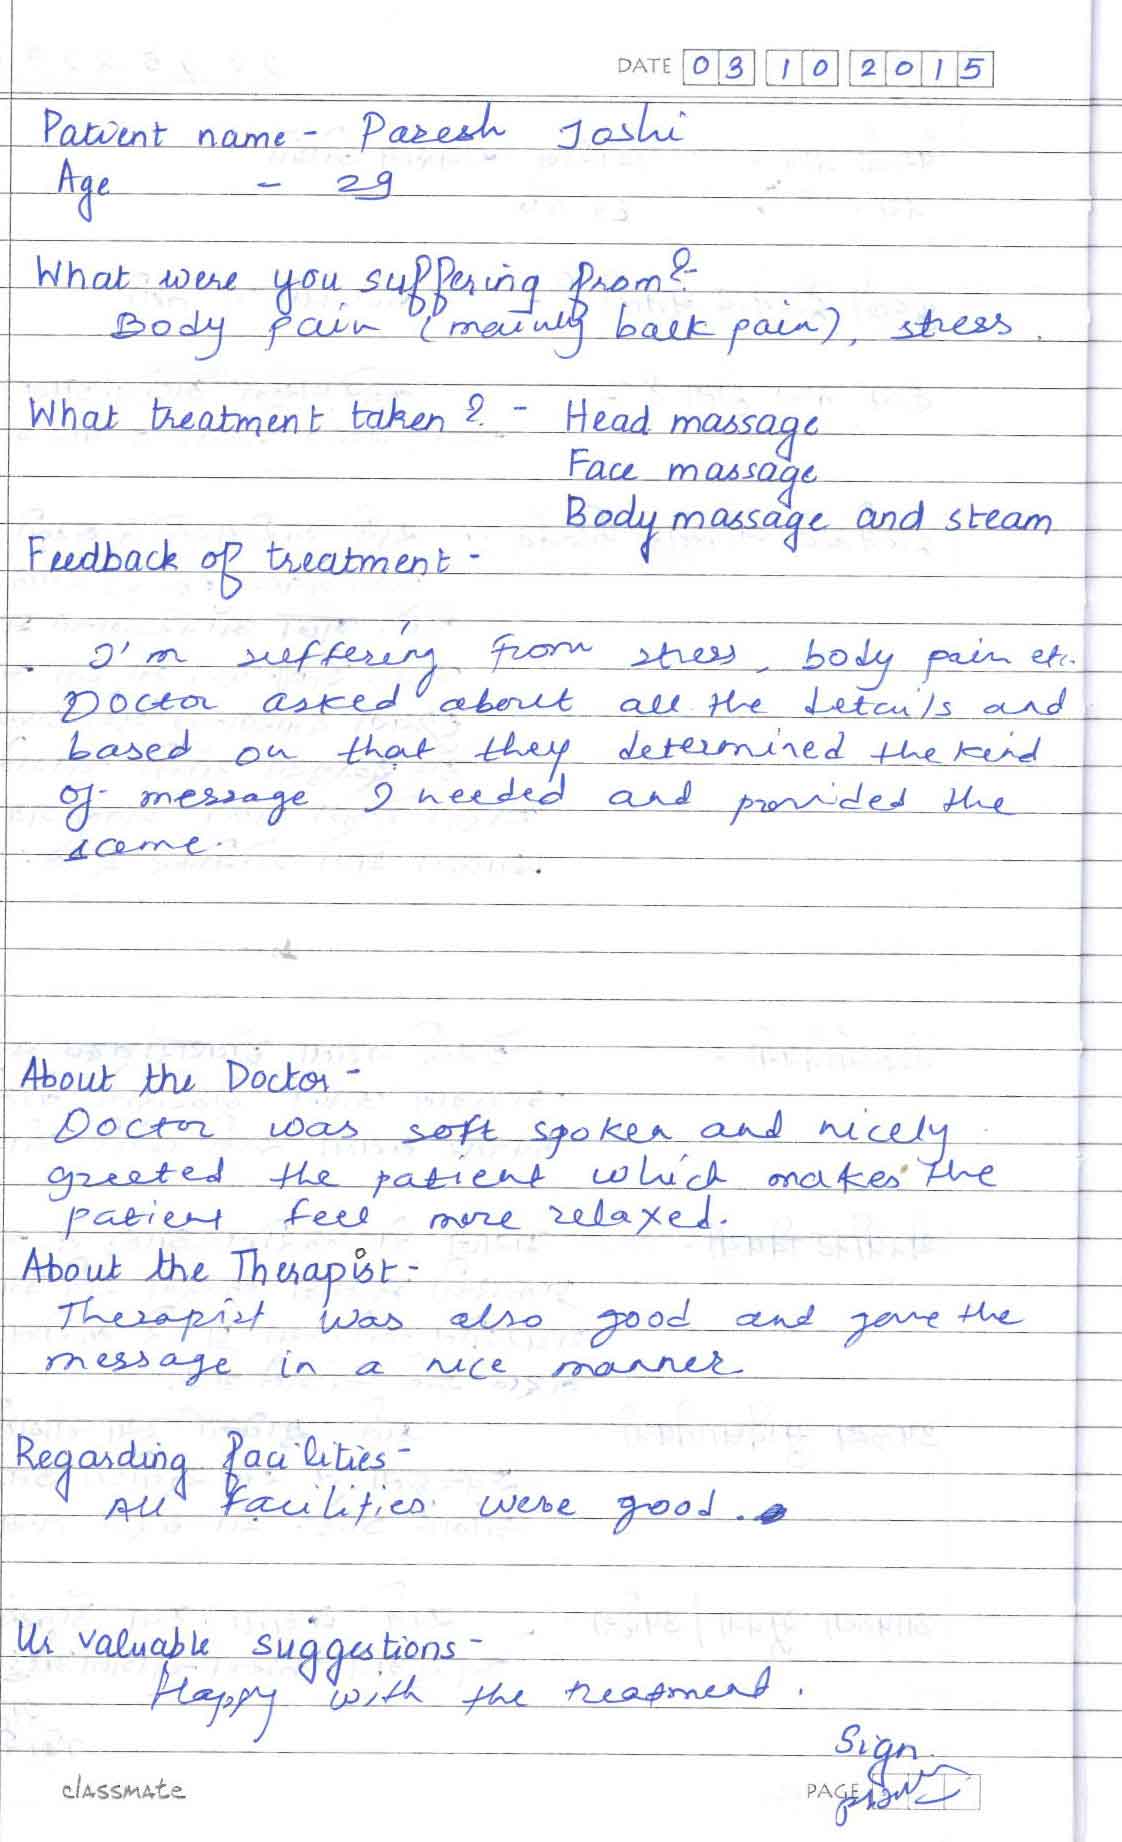 DATE 03 10 2015
Patient name - Paresh Joshi
Age - 29
What were you suffering from?-
Body pain (mainly back pain), stress.
What treatment taken? - Head massage
Face massage
Body massage and steam
Feedback of treatment -
I'm suffering from stress, body pain etc.
Doctor asked about all the details and
based on that they determined the kind
of message I needed and provided the
same.
About the Doctor -
Doctor was soft spoken and nicely
greeted the patient which makes the
patient feel more relaxed.
About the Therapist -
Therapist was also good and gave the
message in a nice manner
Regarding facilities -
All facilities were good.
Ur valuable suggestions -
Happy with the treatment.
Sign
classmate PAGE